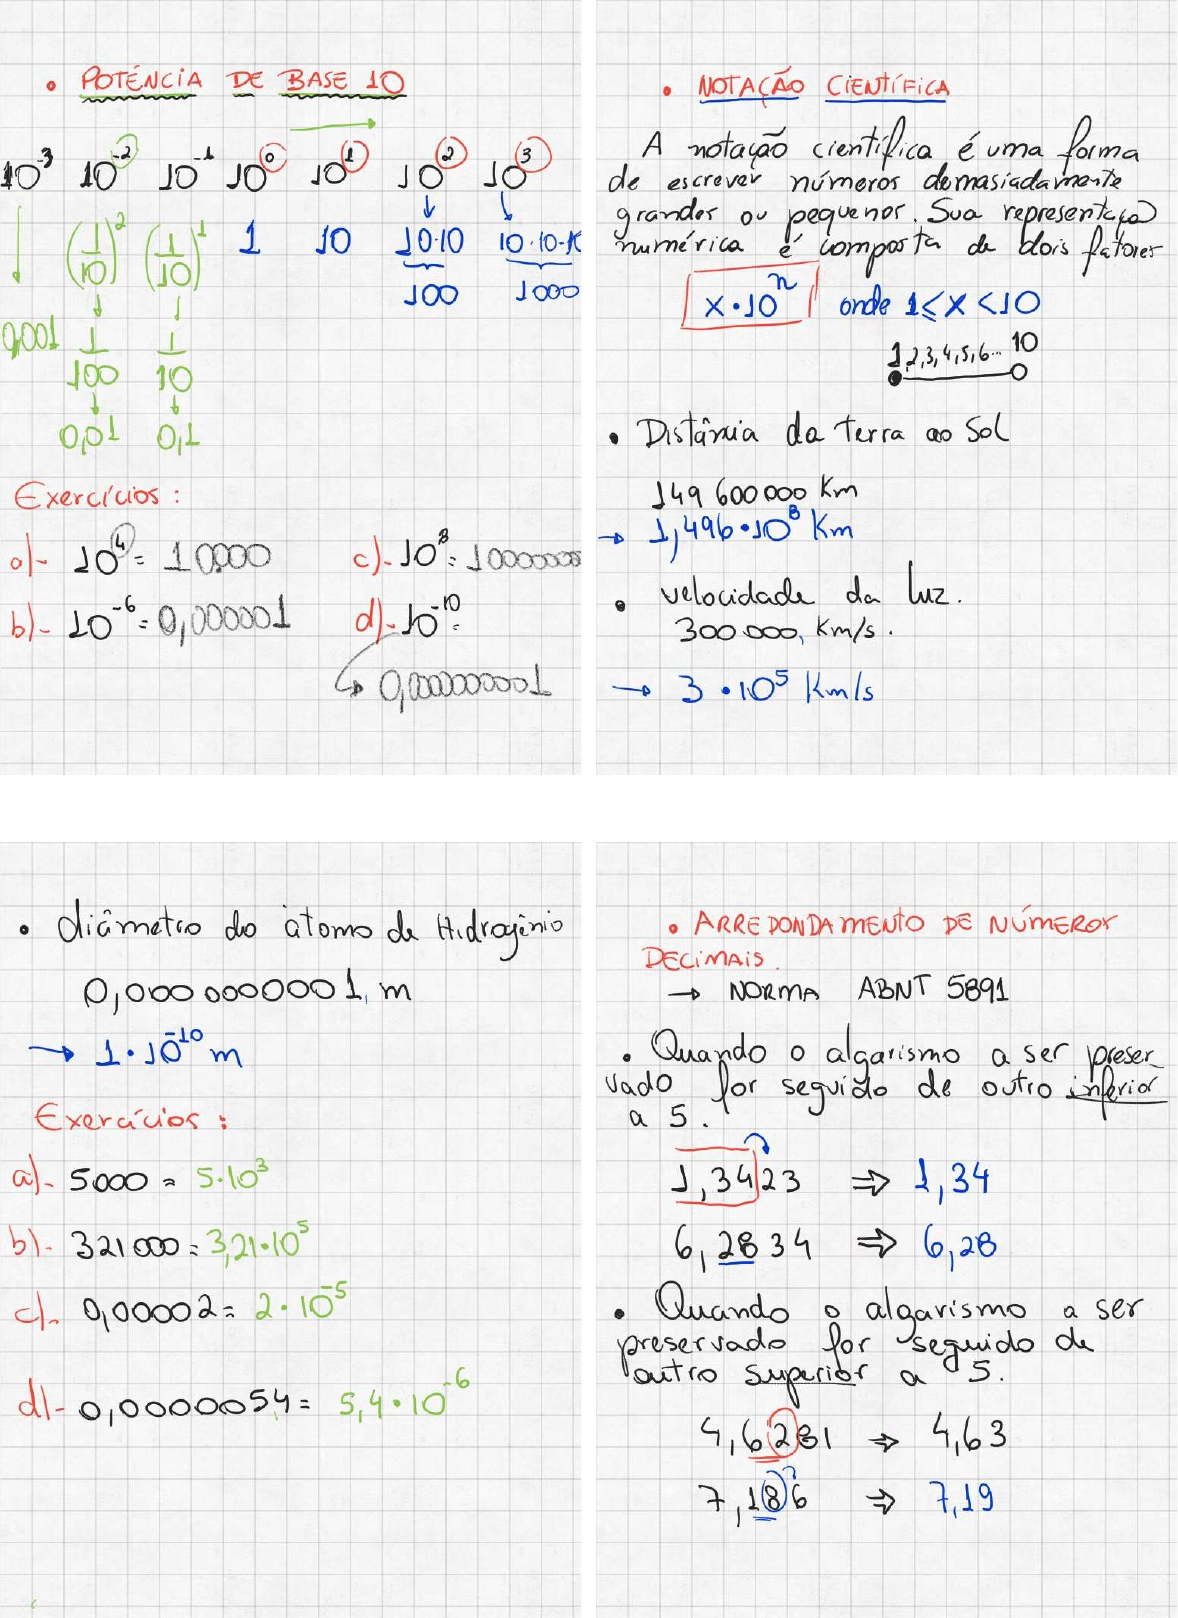 • POTÊNCIA DE BASE 10
10⁻³ 10⁻² 10⁻¹ 10⁰ 10¹ 10² 10³
(1/10)² (1/10)¹ 1 10 10·10 10·10·10
100 1000
0,001 1/100 1/10
0,01 0,1
Exercícios:
a)- 10⁴ = 10000 c)- 10⁸ = 100000000
b)- 10⁻⁶ = 0,000001 d)- 10⁻¹⁰ =
→ 0,0000000001
• NOTAÇÃO CIENTÍFICA
A notação científica é uma forma
de escrever números demasiadamente
grandes ou pequenos. Sua representaçã
numérica é composta de dois fatores
x·10ⁿ onde 1≤x<10
1,2,3,4,5,6... 10
• Distância da terra ao Sol
149 600 000 Km
→ 1,496·10⁸ Km
• velocidade da luz.
300 000, Km/s.
→ 3·10⁵ Km/s
• diâmetro do átomo de Hidrogênio
0,0000000001, m
→ 1·10⁻¹⁰ m
Exercícios:
a)- 5000 = 5·10³
b)- 321000 = 3,21·10⁵
c)- 0,00002 = 2·10⁻⁵
d)- 0,0000054 = 5,4·10⁻⁶
• ARREDONDAMENTO DE NÚMEROS
DECIMAIS.
→ NORMA ABNT 5891
• Quando o algarismo a ser preser_
vado for seguido de outro inferior
a 5.
1,3423 ⇒ 1,34
6,2834 ⇒ 6,28
• Quando o algarismo a ser
preservado for seguido de
outro superior a 5.
4,6281 ⇒ 4,63
7,186 ⇒ 7,19